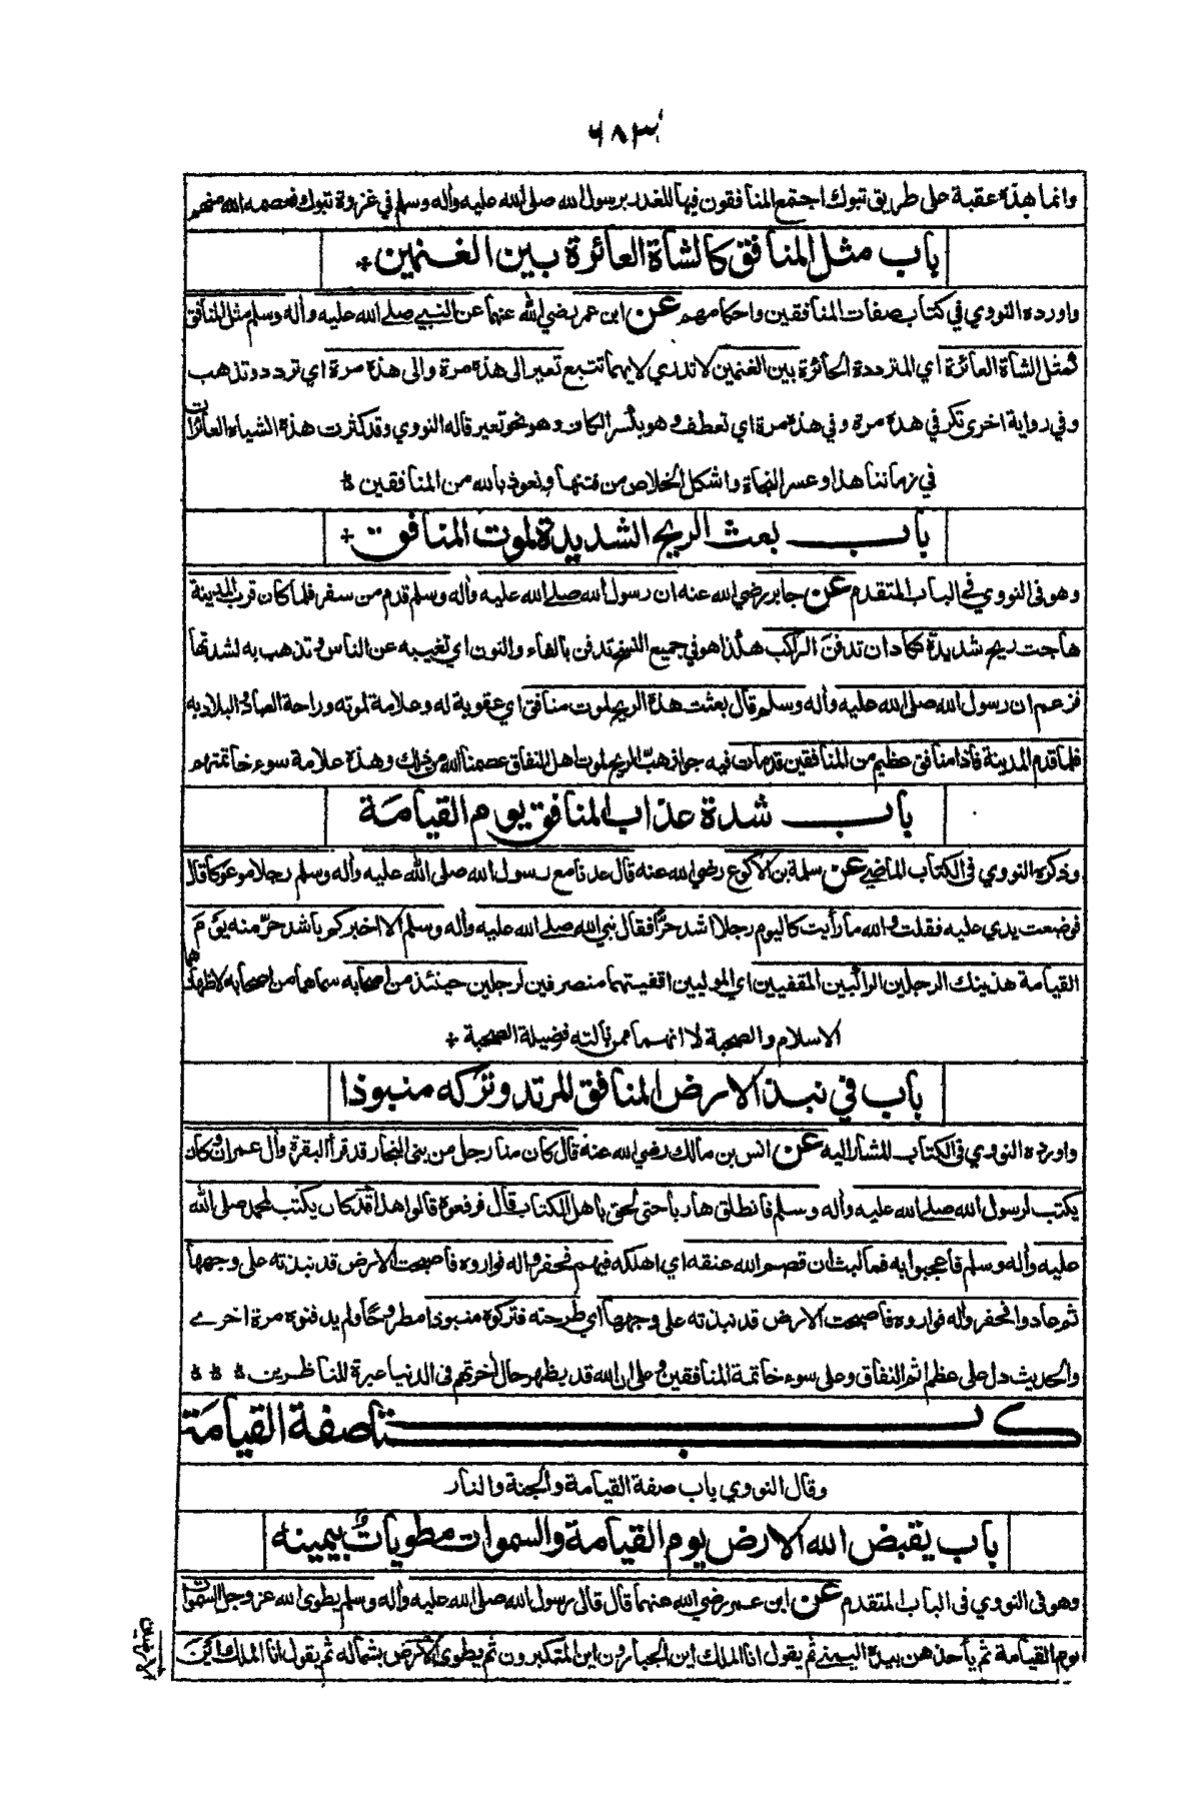 ٦٨٣
وانما هذه عقبة على طريق تبوك اجتمع المنافقون فيها للغدر برسول الله صلى الله عليه وأله وسلم في غزوة تبوك فعصمه الله منهم
باب مثل المنافق كالشاة العائرة بين الغنمين
واورده النووي في كتاب صفات المنافقين واحكامهم عن ابن عمر رضي الله عنهما عن النبي صلى الله عليه وأله وسلم مثل المنافق
كمثل الشاة العائرة اي المترددة الحائرة بين الغنمين لا تدري لايهما تتبع تعير الى هذه مرة والى هذه مرة اي تردد وتذهب
وفي رواية اخرى تكر في هذه مرة وفي هذه مرة اي تعطف وهو بكسر الكاف وهو نحو تعير قاله النووي وقد كثرت هذه الشياه العائرات
في زماننا هذا وعسر النجاة واشكل الخلاص من فتنها ونعوذ بالله من المنافقين
باب بعث الريح الشديدة لموت المنافق
وهو فى النووي في الباب المتقدم عن جابر رضي الله عنه ان رسول الله صلى الله عليه وأله وسلم قدم من سفر فلما كان قرب المدينة
هاجت ريح شديدة تكاد ان تدفن الراكب هكذا هو في جميع النسخ تدفن بالفاء والنون اي تغيبه عن الناس وتذهب به لشدتها
فزعم ان رسول الله صلى الله عليه وأله وسلم قال بعثت هذه الريح لموت منافق اي عقوبة له وعلامة لموته وراحة العباد والبلاد به
فلما قدم المدينة فاذا منافق عظيم من المنافقين قد مات فيه جواز هب الريح لموت اهل النفاق عصمنا الله من ذلك وهذه علامة سوء خاتمتهم
باب شدة عذاب المنافق يوم القيامة
وذكره النووي فى الكتاب الماضي عن سلمة بن الاكوع رضي الله عنه قال عدنا مع رسول الله صلى الله عليه وأله وسلم رجلا موعوكا قال
فوضعت يدي عليه فقلت والله ما رأيت كاليوم رجلا اشد حرًّا فقال نبي الله صلى الله عليه وأله وسلم الا اخبركم باشد حرّ منه يوم
القيامة هذينك الرجلين الراكبين المقفيين اي الموليين اقفيتهما منصرفين لرجلين حينئذ من اصحابه سماهما من اصحابه لاظهارهما
الاسلام والصحبة لا انهما ممن نالته فضيلة الصحبة
باب في نبذ الارض المنافق المرتد وتركه منبوذا
واورده النووي فى الكتاب المشار اليه عن انس بن مالك رضي الله عنه قال كان منا رجل من بنى النجار قد قرأ البقرة وأل عمران وكان
يكتب لرسول الله صلى الله عليه وأله وسلم فانطلق هاربا حتى لحق باهل الكتاب قال فرفعوه قالوا هذا قد كان يكتب لمحمد صلى الله
عليه وأله وسلم فاعجبوا به فما لبث ان قصم الله عنقه اي اهلكه فيهم فحفروا له فواروه فاصبحت الارض قد نبذته على وجهها
ثم عادوا فحفروا له فواروه فاصبحت الارض قد نبذته على وجهها اي طرحته فتركوه منبوذا مطروحًا ولم يدفنوه مرة اخرى
والحديث دل على عظم اثم النفاق وعلى سوء خاتمة المنافقين وعلى ان الله قد يظهر حال أخرتهم فى الدنيا عبرة للناظرين
كتاب صفة القيامة
وقال النووي باب صفة القيامة والجنة والنار
باب يقبض الله الارض يوم القيامة والسموات مطويات بيمينه
وهو فى النووي فى الباب المتقدم عن ابن عمر رضي الله عنهما قال قال رسول الله صلى الله عليه وأله وسلم يطوى الله عز وجل السموات
يوم القيامة ثم يأخذهن بيده اليمنى ثم يقول انا الملك اين الجبارون اين المتكبرون ثم يطوى الارض بشماله ثم يقول انا الملك اين